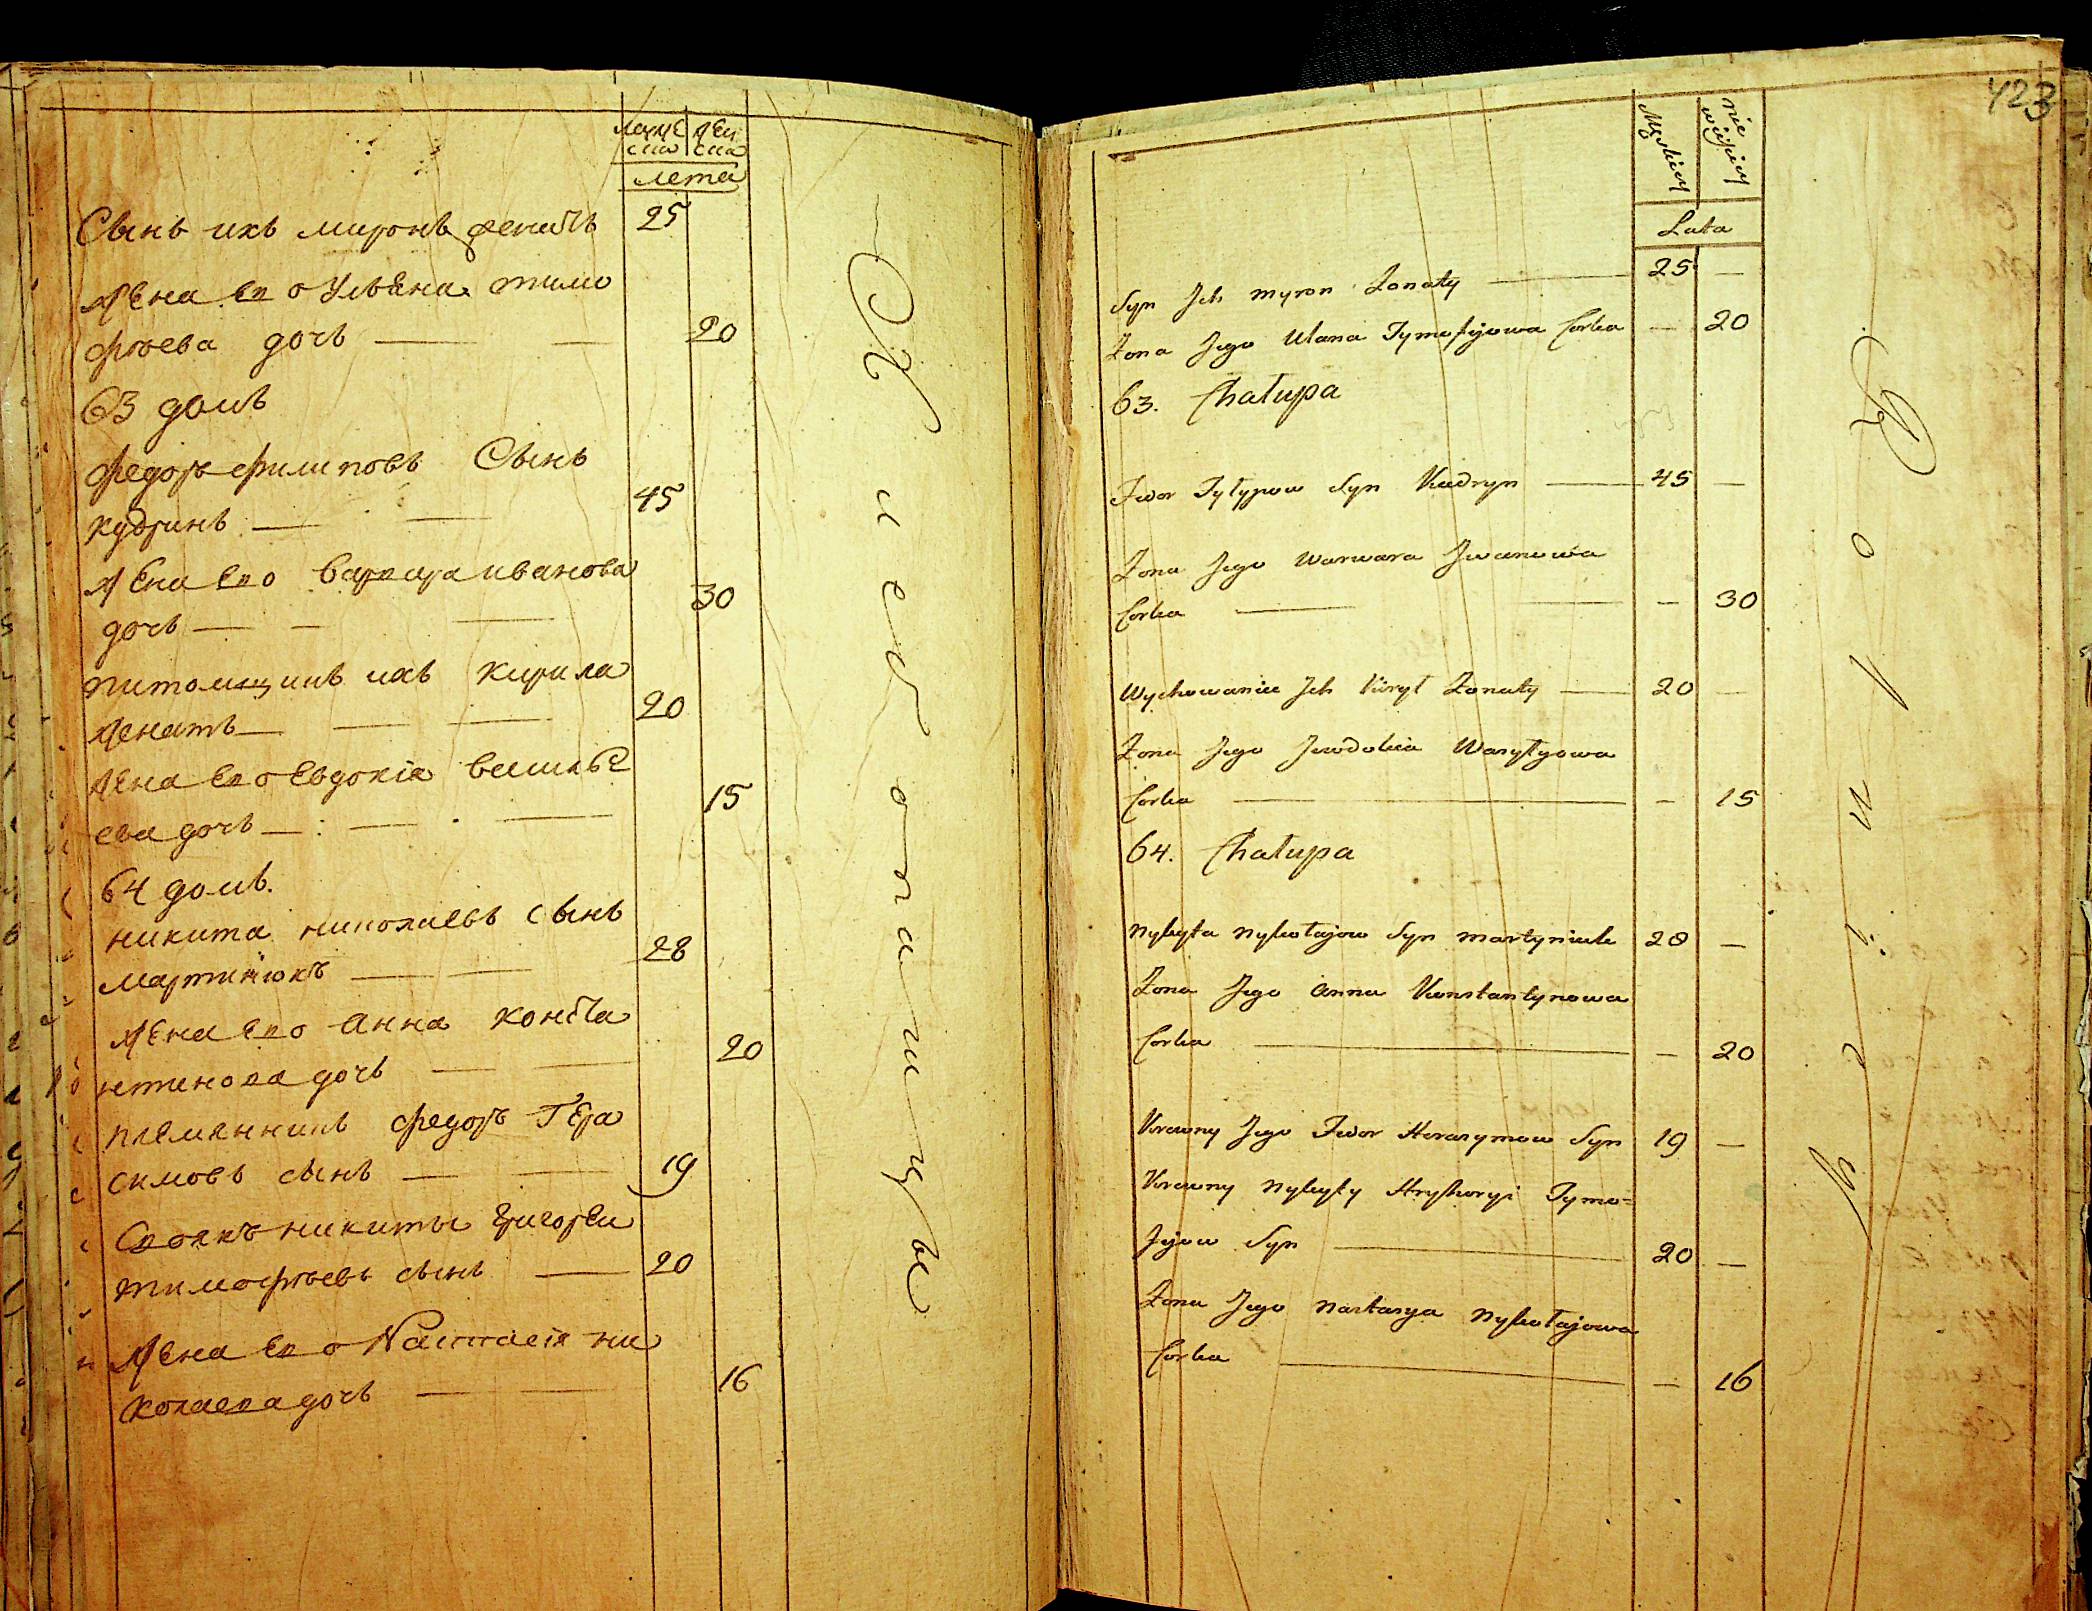 муже жен
ска ска
лета
Сынъ ихъ миронъ женатъ 25
Жена его Ульяна тимо
фѣева дочь 20
63 домъ
Федоръ Филиповъ Сынъ
Кудринъ 45
Жена его Варвара иванова
дочь 30
питомицинъ ихъ Кирила
женатъ 20
жена его Евдокія василье
ева дочь 15
64 домъ.
никита николаевъ Сынъ
мартинюкъ 28
Жена его Анна Конста
нтинова дочь 20
племянникъ Федоръ Гера
симовъ сынъ 19
Своякъ никиты Григорей
тимофѣевъ сынъ 20
Жена его Настасія ни
колаева дочь 16
423
Męskiey
niewieściey
Lata
Syn Jch Myron Żonaty 25 —
Żona Jego Ulana Tymofijowa Corka — 20
63. Chałupa
Fedor Fyłypow Syn Kudryn 45 —
Żona Jego Warwara Jwanowa
Corka — 30
Wychowaniec Jch Kirył Żonaty 20 —
Żona Jego Jewdokia Wasylyowa
Corka — 15
64. Chałupa
Nykyta Nykołajow Syn Martyniuk 28 —
Żona Jego Anna Konstantynowa
Corka — 20
Krewny Jego Fedor Herasymow Syn 19 —
Krewny Nykyty Hryhoryi Tymo=
fijow Syn 20 —
Żona Jego Nastasya Nykołajowa
Corka — 16